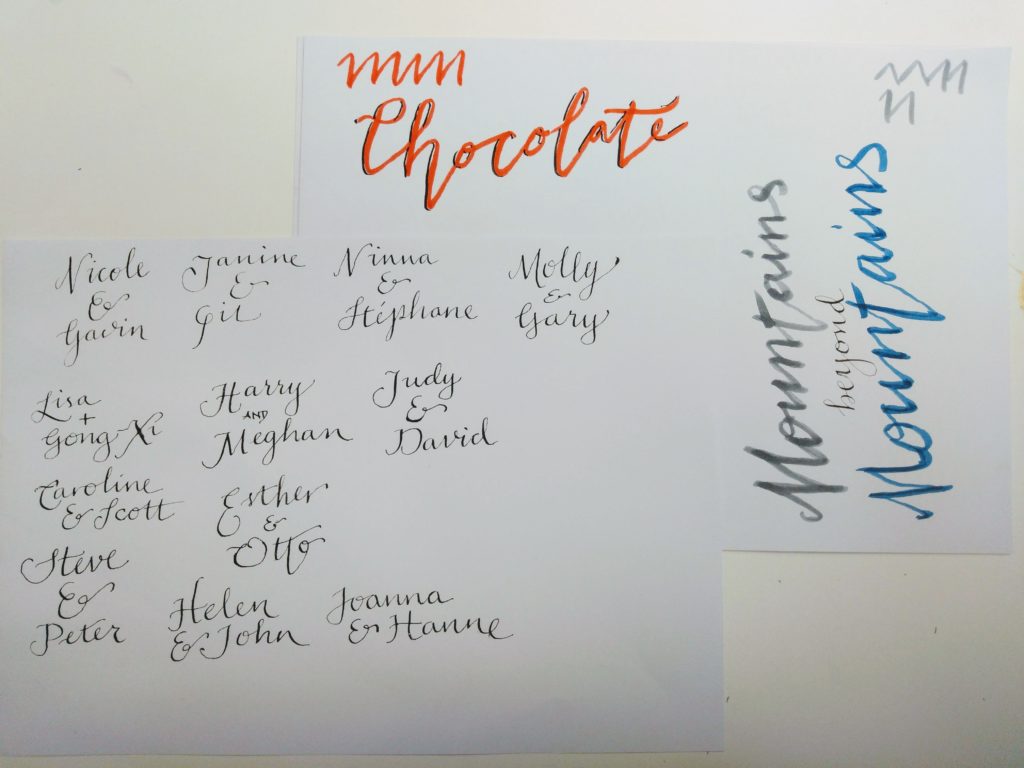 mmm
Chocolate
Mountains
beyond
Mountains
Nicole
&
Gavin
Janine
&
Git
Ninna
&
Stéphane
Molly
&
Gary
Lisa
+
Gong-Xi
Harry
AND
Meghan
Judy
&
David
Caroline
& Scott
Esther
&
Otto
Steve
&
Peter
Helen
& John
Joanna
& Hanne